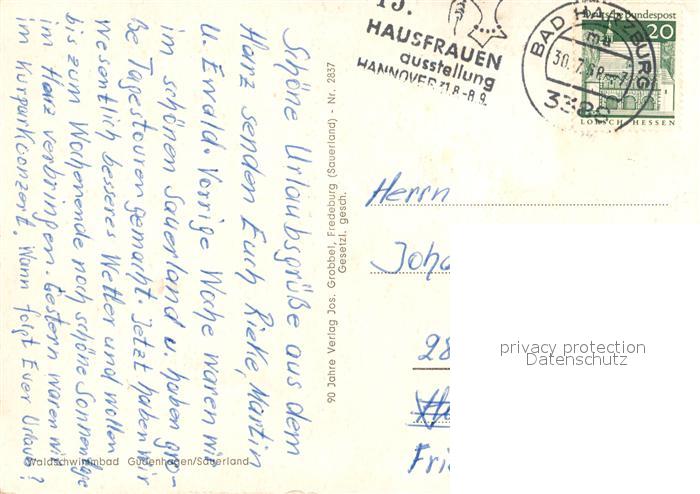 Schöne Urlaubsgrüße aus dem
Harz senden Euch Rieke, Martin
u. Ewald. Vorrige Woche waren wir
im schönen Sauerland u. haben gro-
ße Tagestouren gemacht. Jetzt haben wir
wesentlich besseres Wetter und wollen
bis zum Wochenende noch schöne Sonnentage
im Harz verbringen. Gestern waren wir
im Kurparkkonzert. Wann folgt Euer Urlaub?
Waldschwimmbad Gudenhagen/Sauerland
90 Jahre Verlag Jos. Grobbel, Fredeburg (Sauerland) - Nr. 2837
Gesetzl. gesch.
15.
HAUSFRAUEN
ausstellung
HANNOVER 31.8-8.9.
BAD HARZBURG
mu
3388
Deutsche Bundespost
20
LORSCH-HESSEN
Herrn
Joha
28
Fri
privacy protection
Datenschutz